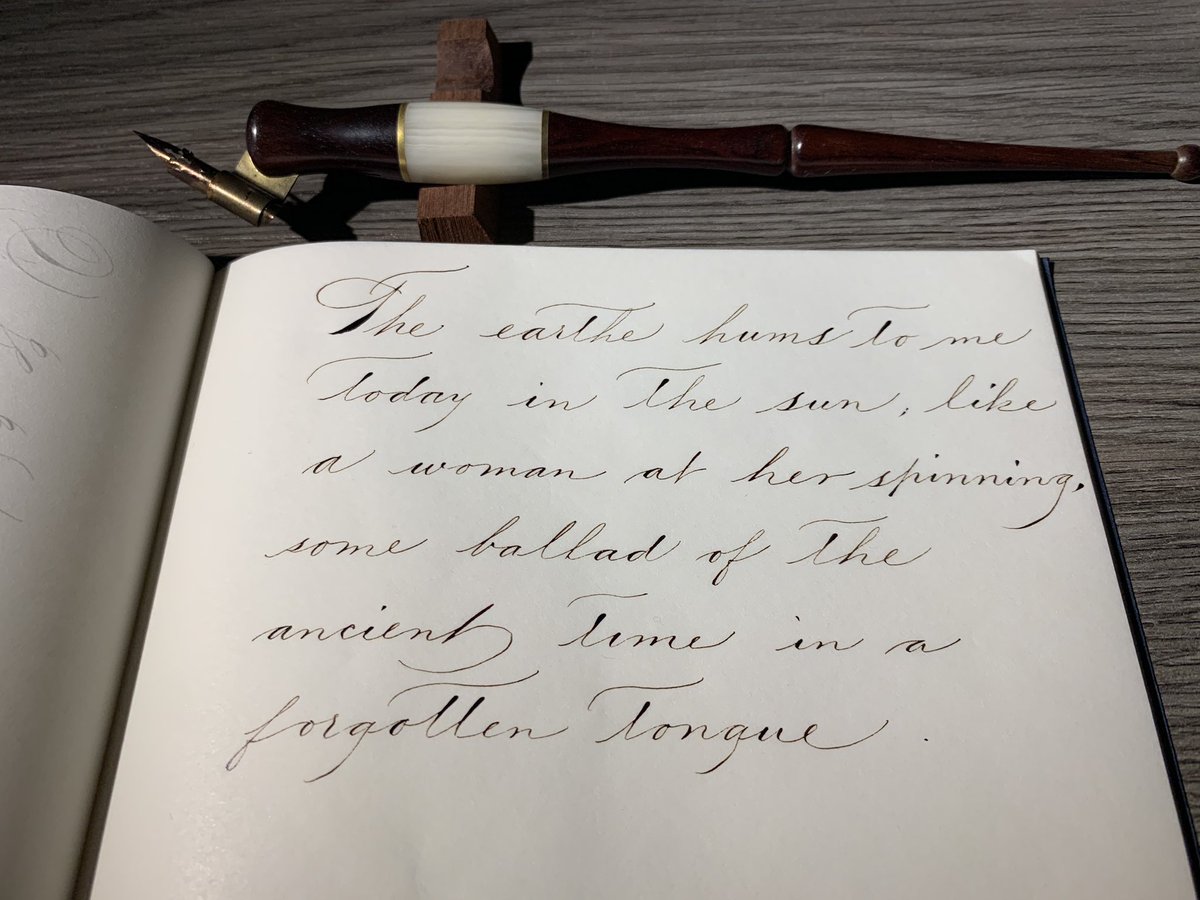 The earthe hums to me
today in the sun, like
a woman at her spinning,
some ballad of the
ancient time in a
forgotten tongue .